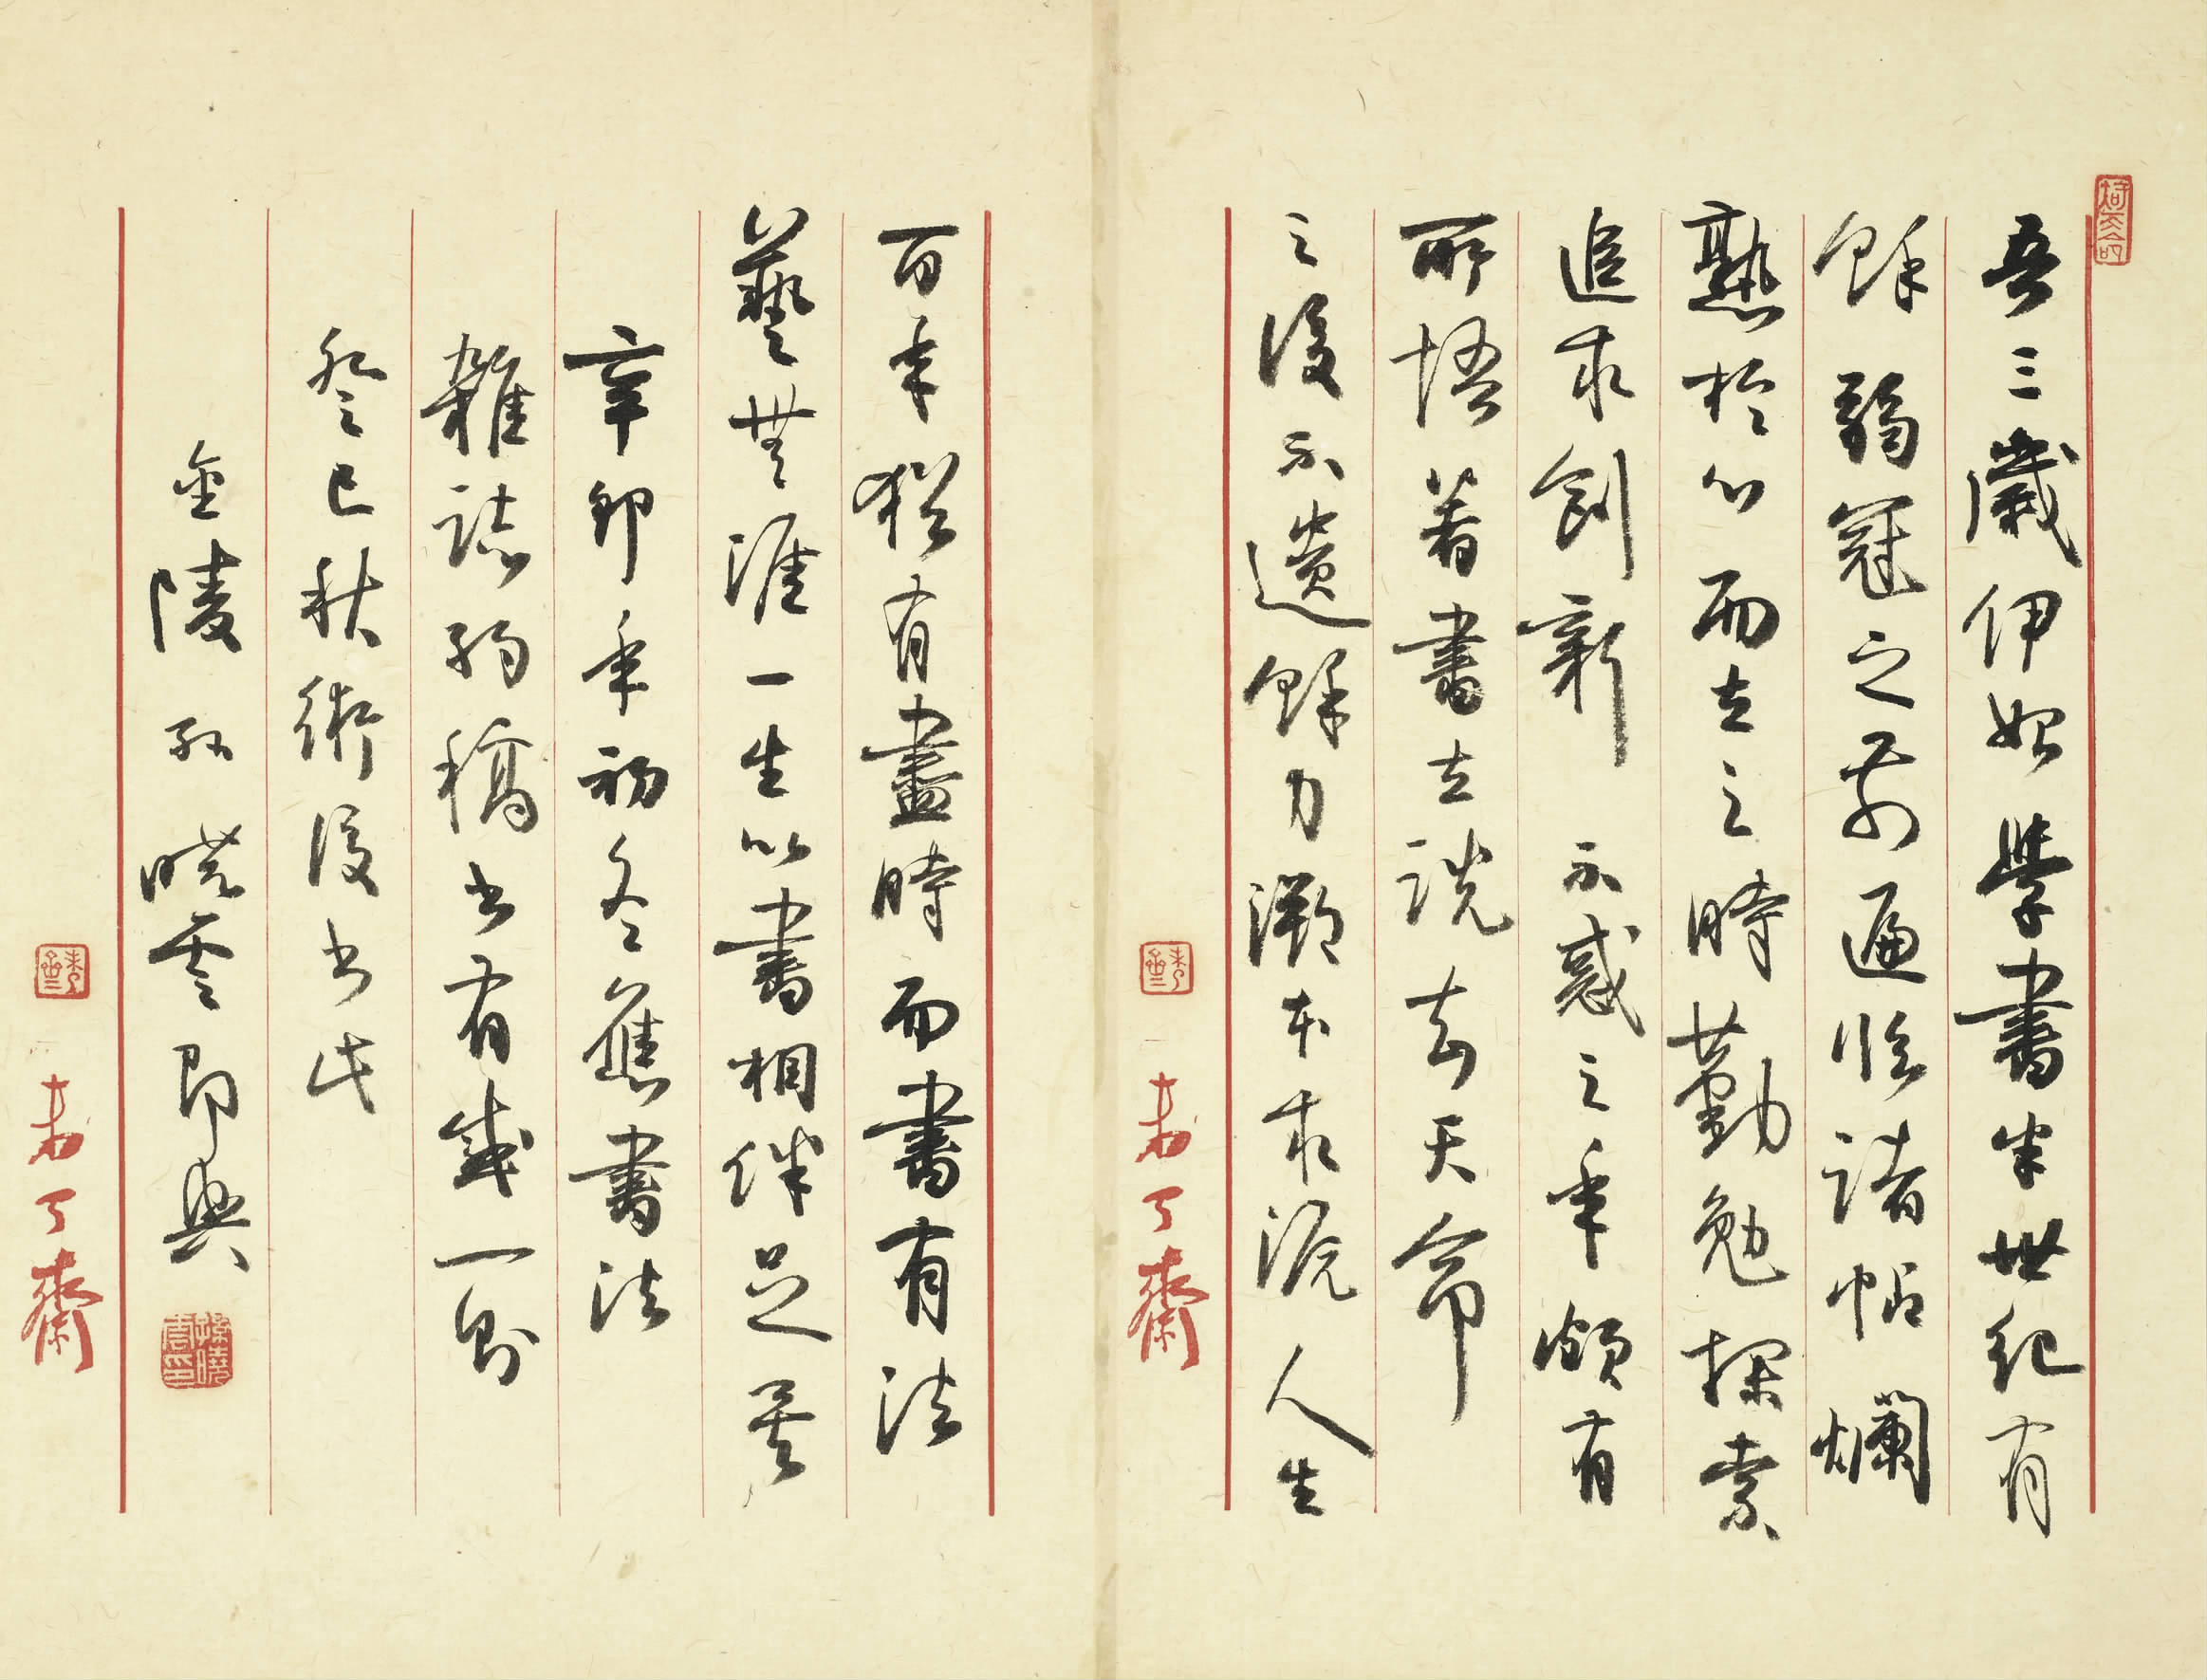 吾三歲伊始學書半世紀有
餘弱冠之前遍臨諸帖爛
熟於心而立之時勤勉探索
追求創新不惑之年頗有
所悟著書立説知天命
之後不遺餘力溯本求源人生
百年猶有盡時而書有法
藝無涯一生以書相伴足矣
辛卯年初冬應書法
雜誌約稿書有感一則
癸巳秋術後書此
金陵孙曉雲即興
孫曉雲印